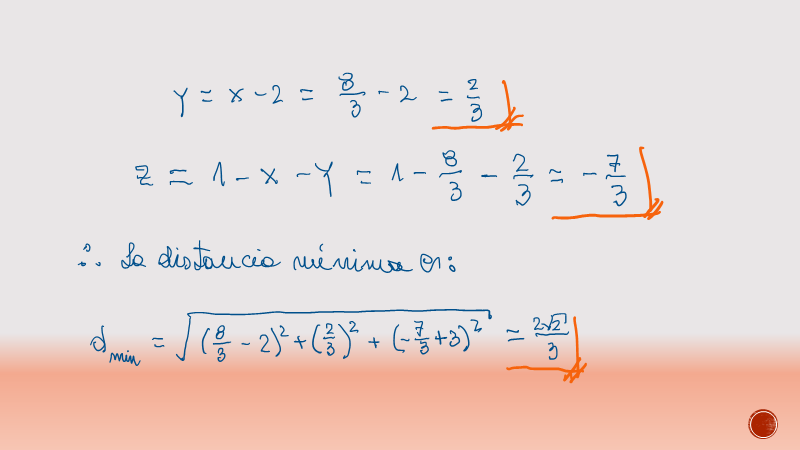 y = x - 2 = 8/3 - 2 = 2/3
z = 1 - x - y = 1 - 8/3 - 2/3 = -7/3
∴ La distancia mínima es:
d_min = √((8/3 - 2)² + (2/3)² + (-7/3 + 3)²) = 2√2/3